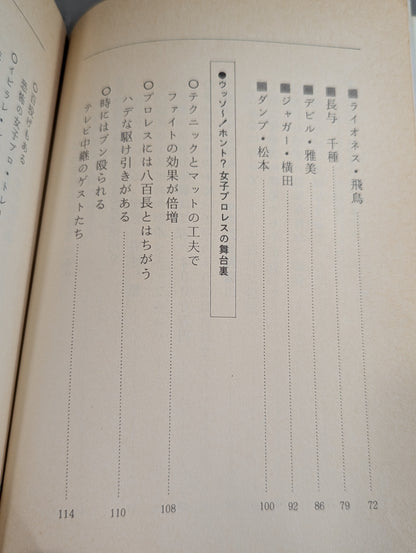 ライオネス・飛鳥 72
長与 千種 79
デビル・雅美 86
ジャガー・横田 92
ダンプ・松本 100
●ウッソ〜!ホント?女子プロレスの舞台裏
○テクニックとマットの工夫で
ファイトの効果が倍増 108
○プロレスには八百長とはちがう
ハデな駆け引きがある 110
○時にはブン殴られる
テレビ中継のゲストたち 114